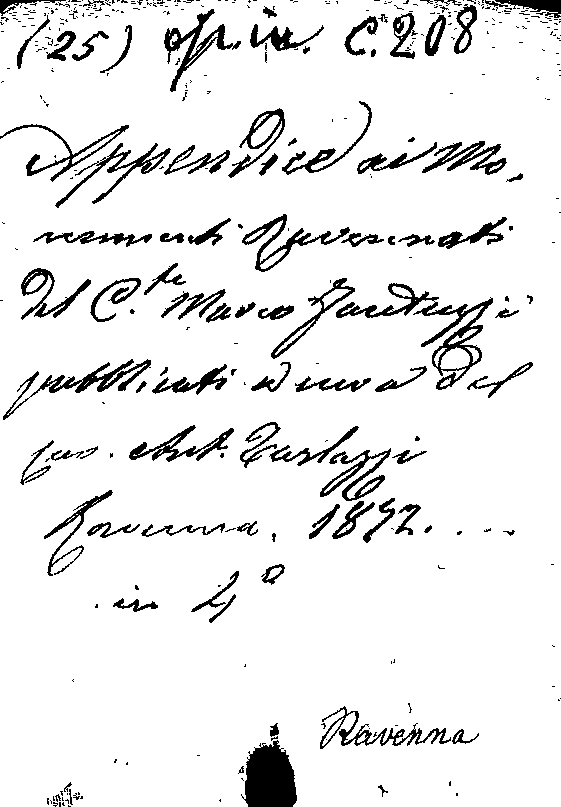 (25) Op. in. C. 208
Appendice ai Mo-
numenti Ravennati
del C.te Marco Fantuzzi
pubblicati a cura del
Can. Ant. Tarlazzi
Ravenna, 1872. ...
in 4°
Ravenna